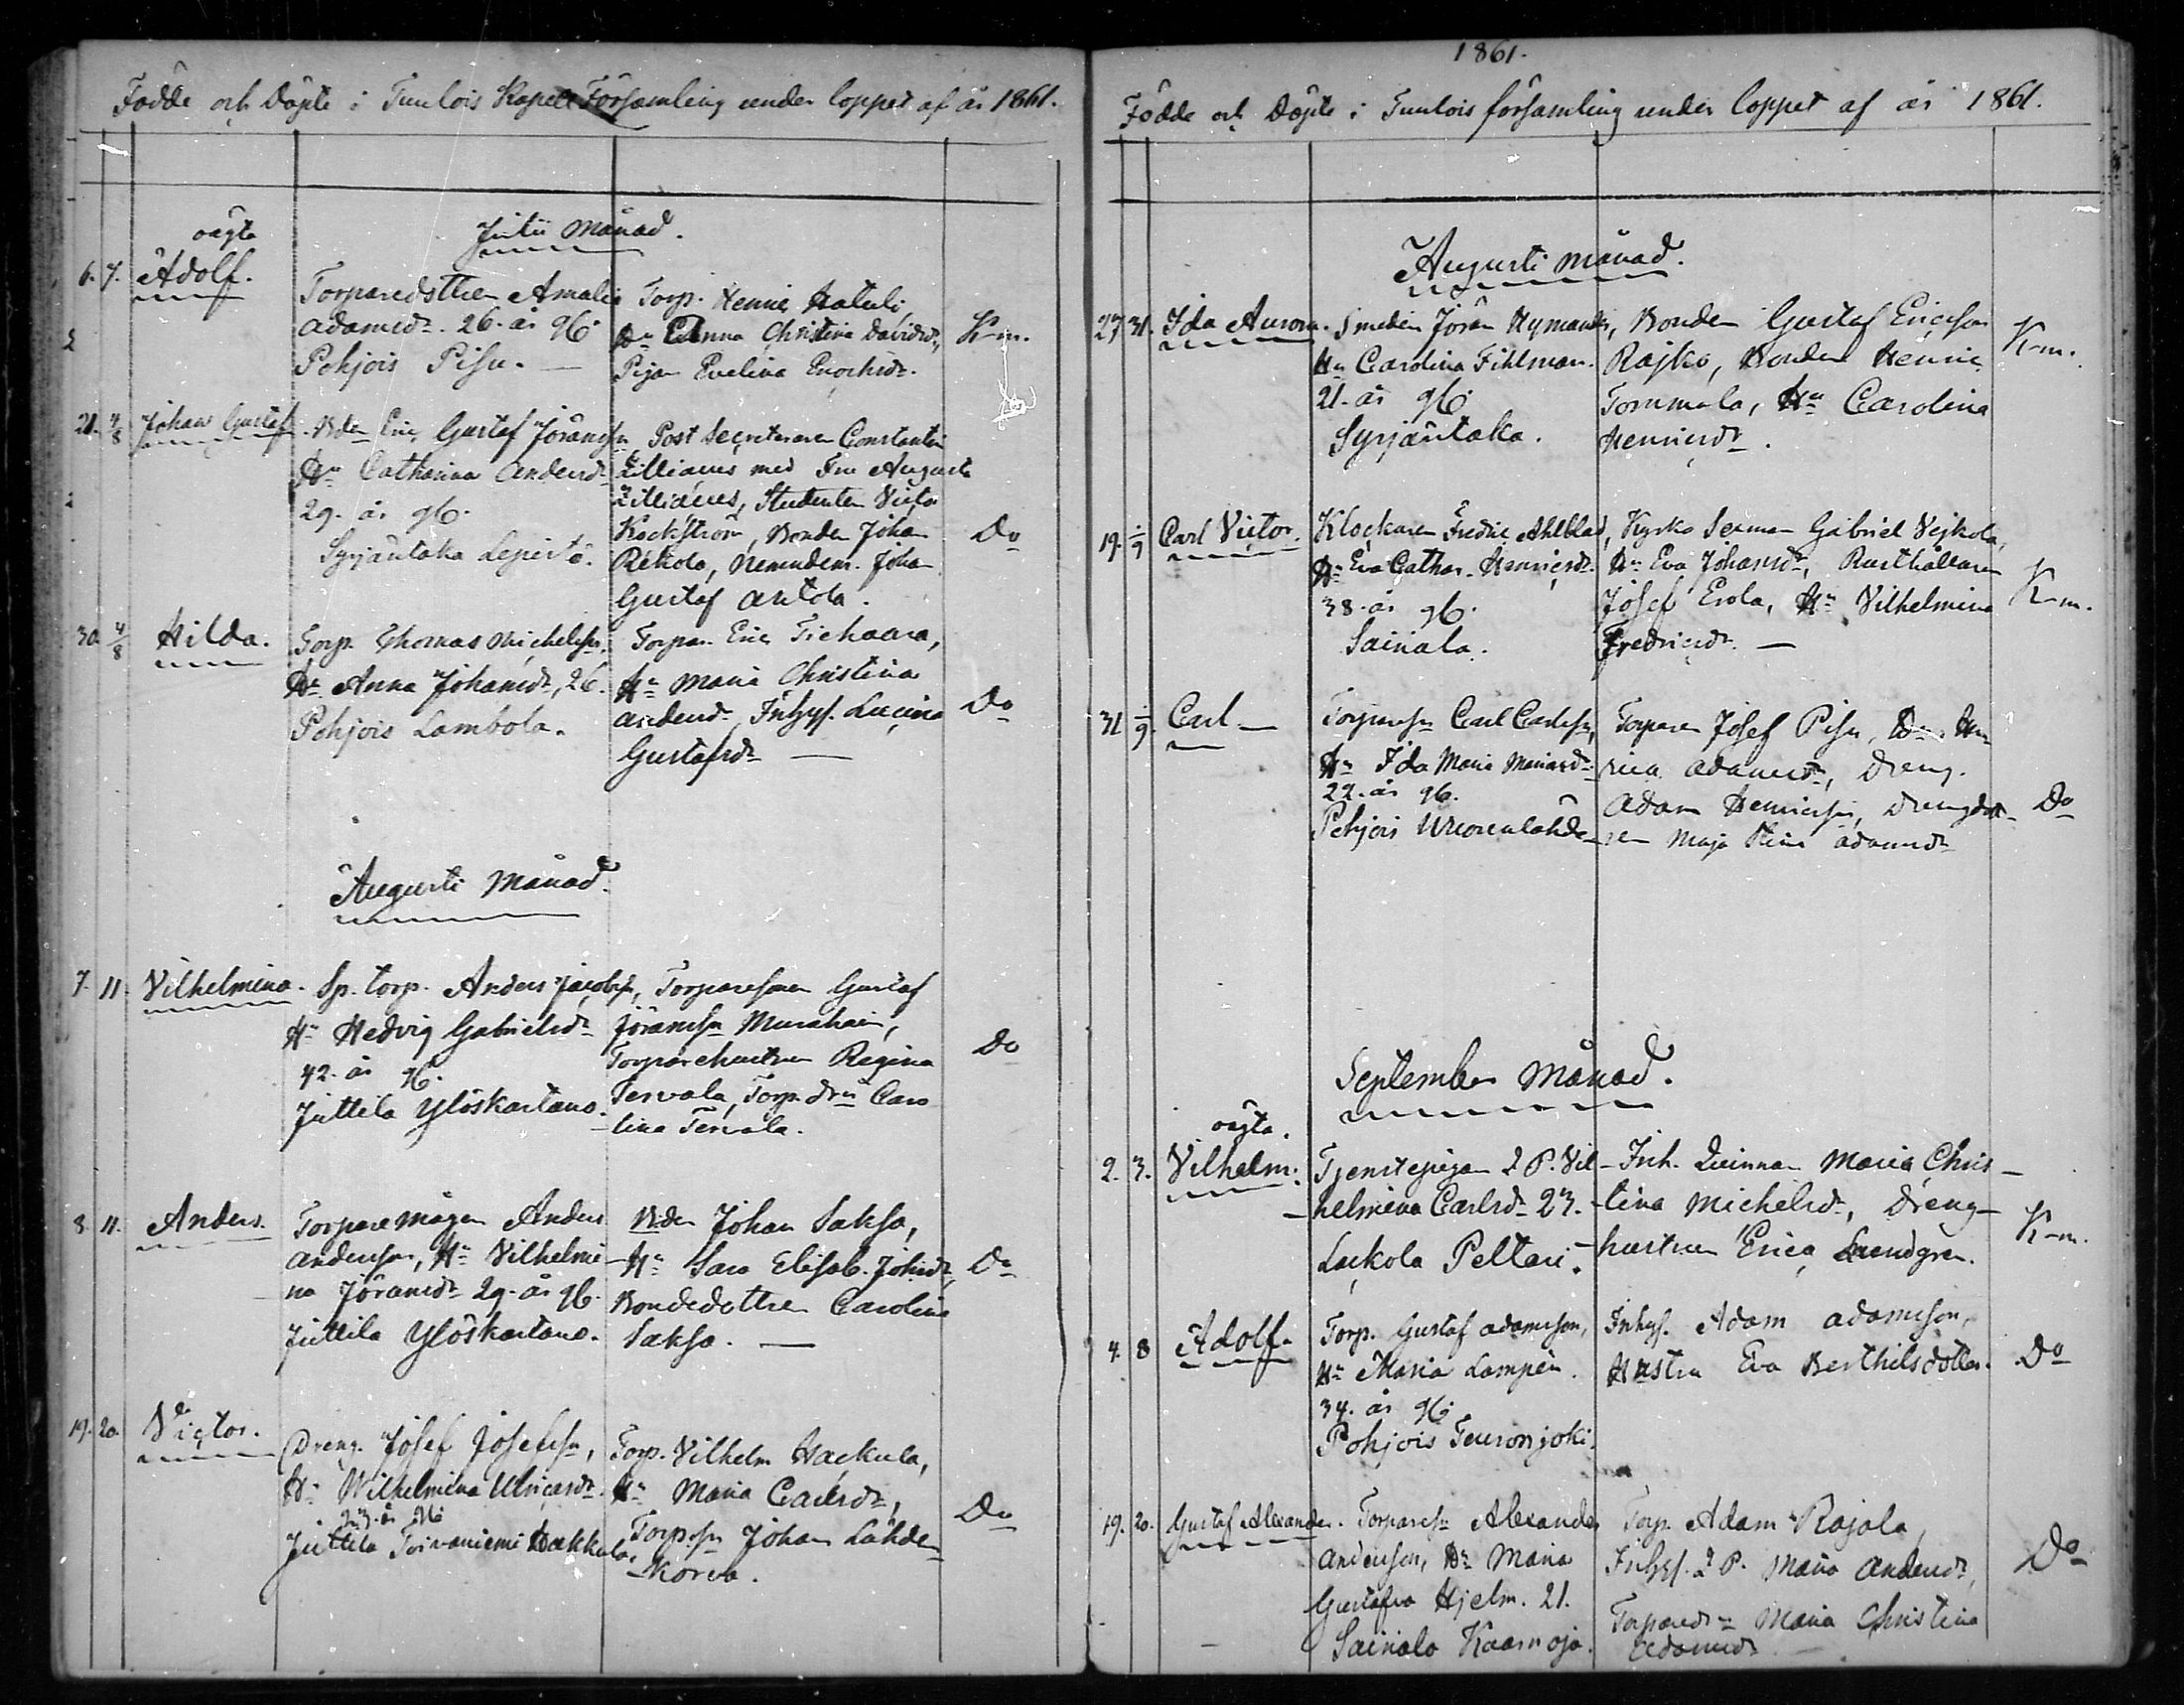 Födde och Döpte i Tuulois Kapell Församling under loppet af år 1861.
Julii Månad.
oägta
6. 7. Adolf.
Torparedottren Amalia
Adamsdr. 26. år g6.
Pohjois Pisu. —
Torp. Henric Hatuli,
Hu Anna Christina Davidsdr,
Pigan Evelina Enochsdr.
K-m.
21. 4/8 Johan Gustaf.
Bden Eric Gustaf Jöransson
Hu Catharina Andersdr
29. år g6.
Syrjäntaka Lepistö.
Post Secreteraren Constantin
Zilliacus med Fru Augusta
Zilliacus, Studenten Victor
Kockström, Bonden Johan
Rekola, Nemndem. Johan
Gustaf Antola.
Do
30 4/8 Hilda.
Torp. Thomas Michelsson,
Hu Anna Johansdr, 26.
Pohjois Lambola.
Torpar. Eric Tiehaara,
Hu Maria Christina
Andersdr, Inhys. Lucina
Gustafsdr —
Do
Augusti Månad.
7. 11. Vilhelmina.
Sp. torp. Anders Jacobsson,
Hu Hedvig Gabrielsdr
42. år g6.
Juttila Ylöskartano.
Torparesonen Gustaf
Jöransson Murahain,
Torparehustrun Regina
Tervala, Torp. drn Caro
lina Tervala.
Do
8. 11. Anders.
Torparemågen Anders
Andersson, Hu Vilhelmi-
na Jöransdr 29. år g6.
Juttila Ylöskartano.
Bden Johan Saksa,
Hu Sara Elisab. Johsdr,
Bondedottren Carolina
Saksa. —
Do
19. 20. Victor.
Dreng. Josef Josefsson,
Hu Wilhelmina Ulricasdr.
23. år g6
Juttila Toivaniemi Hakkula.
Torp. Vilhelm Hackula,
Hu Maria Carlsdr,
Torp.sn Johan Lähde-
korva.
Do
1861.
Födde och Döpte i Tuulois församling under loppet af år 1861.
Augusti månad.
27 31. Ida Aurora.
Smeden Jöran Nymander,
Hu Carolina Fihlman.
21. år g6.
Syrjäntaka.
Bonden Gustaf Ericsson
Rajko, Bonden Henric
Tommola, Hu Carolina
Henricsdr.
K-m.
19. 1/9 Carl Victor.
Klockaren Fredric Ahlblad,
Hu Eva Cathar. Henricsdr.
38. år g6.
Sainala.
Kyrko Sexman Gabriel Vejkola,
Hu Eva Johansdr, Rusthållaren
Josef Erola, Hu Vilhelmina
Fredricsdr. —
K-m.
31 1/9. Carl —
Torparesn Carl Carlsson,
Hu Ida Maria Mariasdr.
22. år g6.
Pohjois Wuorenlahde
Torparen Josef Pisu, Hu Hen
rica Adamsdr, Dreng.
Adam Henricsson, Drengdott-
ren Maja Stina Adamsdr
Do
September Månad.
oägta.
2. 3. Vilhelm.
Tjenstepigan L. P. Vil-
helmina Carlsdr 23.
Luckola Peltari.
Inh. Quinnan Maria Chris-
tina Michelsdr, Dreng-
hustrun Erica Lundgren.
K-m.
4. 8 Adolf.
Torp. Gustaf Adamsson,
Hu Maria Lampén.
34. år g6.
Pohjois Teuronjoki.
Inhys. Adam Adamsson,
Hustru Eva Berthilsdotter.
Do
19. 20. Gustaf Alexander.
Torparesn Alexander
Andersson, Hu Maria
Gustafva Hjelm. 21.
Sainala Kaarnoja.
Torp. Adam Rajala,
Inhys. L. P. Maria Andersdr,
Torparedr Maria Christina
Adamsdr —
Do